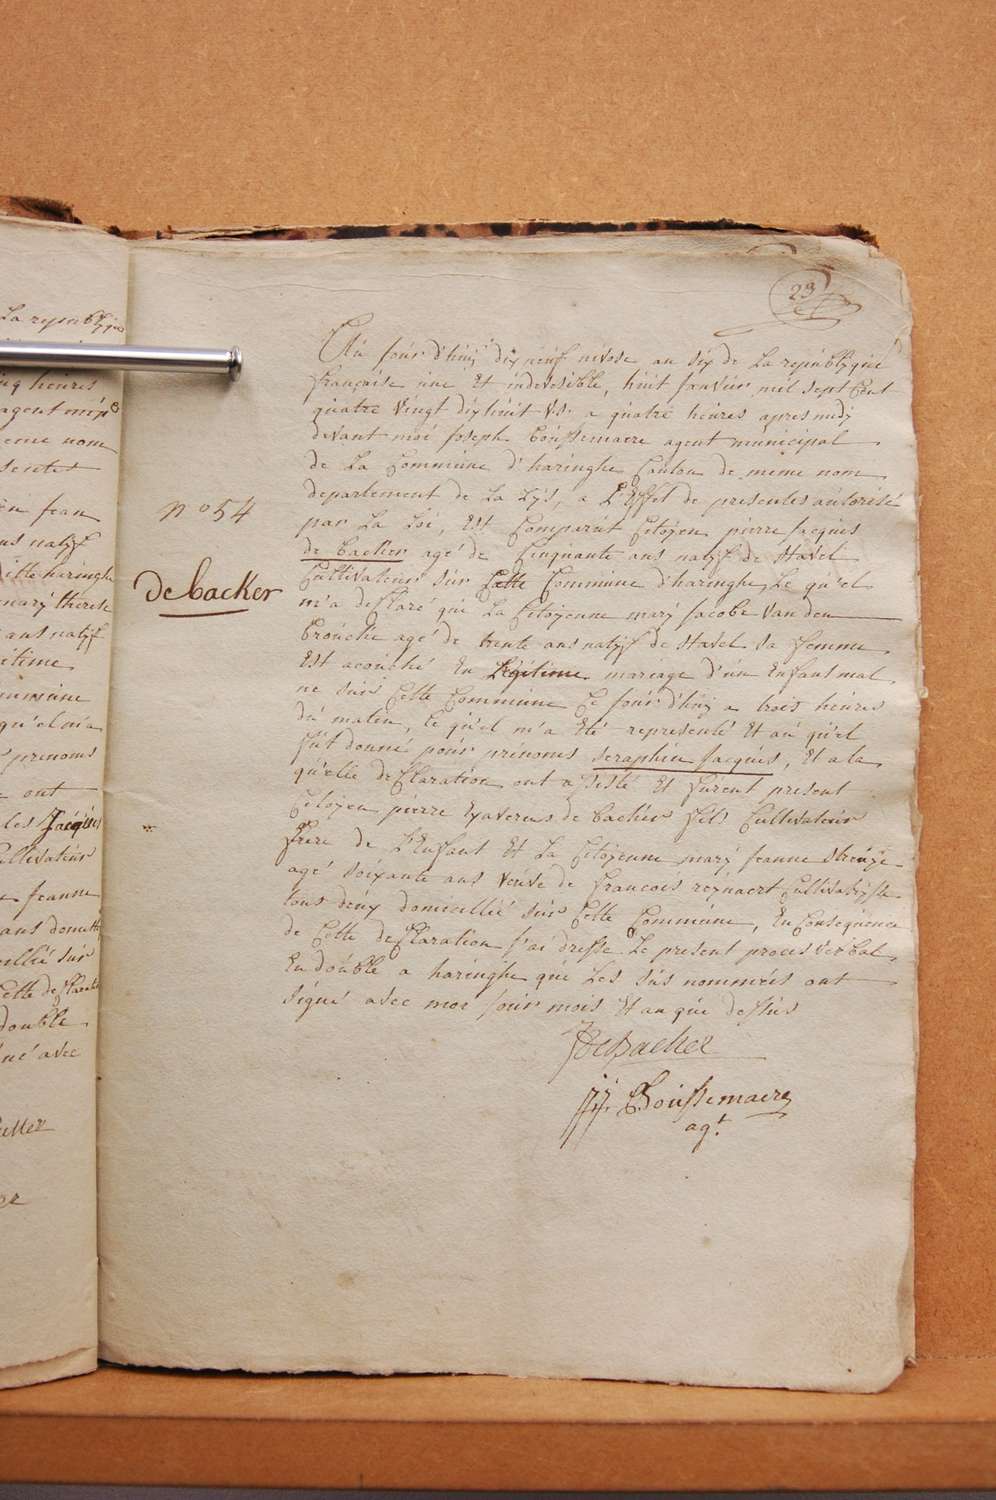 La republique
inq heures
agent mipl
eme nom
sentes
en jean
ns natif
ditte haringhe
mary therese
ans natif
itime
ommune
qu'el m'a
prenoms
ont
les Jacques
Cultivateur
Jeanne
ans domicilié
cillié sur
Cette deklaration
double
né avec
23
Au jour d'huy dix neuf nivose an six de La republique
française une Et indivisible, huit janvier mil sept Cent
quatre vingt dix huit v.s. a quatre heures apres midy
devant moi joseph Boussemaere agent municipal
de La Commune d'haringhe Canton de meme nom
departement de La Lys, a L'Effet de presentes autorisé
n° 54
par La Loi, Est Comparut Citoyen pierre jacques
de backer agé de Cinquante ans natif de Stavel
de backer
Cultivateur sur Cette Commune d'haringhe, Le qu'el
m'a deklaré que La Citoyenne mary jacobe van den
brouche agé de trente ans natif de Stavel sa femme
Est acouché En Légitime mariage d'un Enfant mal
ne sur Cette Commune Ce jour d'huy a trois heures
du matin, Ce qu'il m'a Eté representé Et au qu'el
fut donné pour prenoms seraphin jacques, Et a la
qu'elle deklaration ont assisté Et furent present
Citoyen pierre Exaverus de backer fils Cultivateur
frere de L'Enfant Et La Citoyenne mary jeanne
agé soixante ans veuve de francois reynaert Cultivatrisse
tous deux domicillié sur Cette Commune, En Consequence
de Cette deklaration j'ai dresse Le present proces verbal
En double a haringhe que Les sus nommées ont
signé avec moi jour mois Et an que dessus
DeBacker
JJ. Boussemaere
agt.